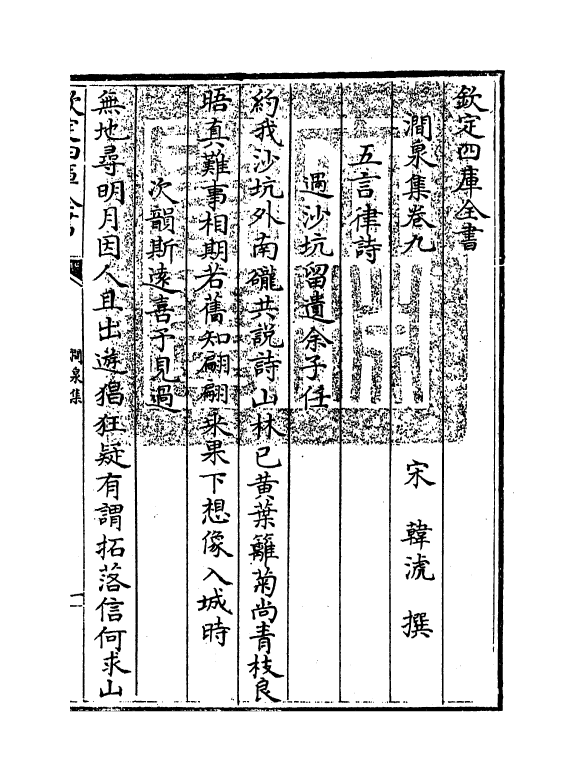 欽定四庫全書
澗泉集卷九
宋 韓淲 撰
五言律詩
過沙坑留遺余子任
約我沙坑外南礲共説詩山林已黄葉籬菊尚青枝良
晤真難事相期若舊知翩翩乗果下想像入城時
次韻斯逺喜子見過
無地尋明月因人且出遊猖狂疑有謂拓落信何求山
欽定四庫全書
澗泉集
一